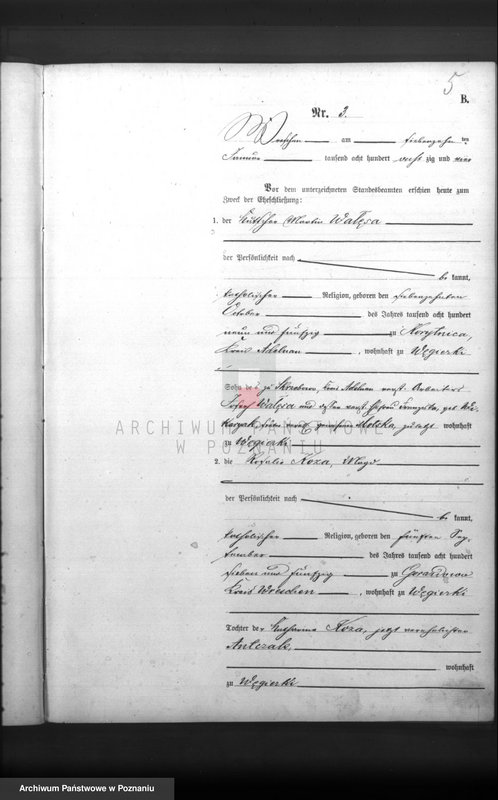 5
B.
Nr. 3.
Wreschen am siebenzehn ten
Januar tausend acht hundert acht zig und vier
Vor dem unterzeichneten Standesbeamten erschien heute zum
Zweck der Eheschließung:
1. der Kutscher Martin Wałęsa
der Persönlichkeit nach
be kannt,
katholischer Religion, geboren den siebenzehnten
October des Jahres tausend acht hundert
neun und fünfzig zu Korytnica,
Kreis Adelnau, wohnhaft zu Węgierki
Sohn des zu Skrzebowo, Kreis Adelnau verst. Arbeiters
Josef Wałęsa und dessen verst. Ehefrau Franziska, geb.
Molska, zuletzt wohnhaft
ARCHIWUM PAŃSTWOWE
W POZNANIU
zu Węgierki
2. die Rosalie Koza, Magd
der Persönlichkeit nach
be kannt,
katholischer Religion, geboren den fünften Sep-
tember des Jahres tausend acht hundert
sieben und fünfzig zu Gorazdowo
Kreis Wreschen, wohnhaft zu Węgierki
Tochter der Katharina Koza, jetzt verehelichten
Antczak,
wohnhaft
zu Węgierki
Archiwum Państwowe w Poznaniu